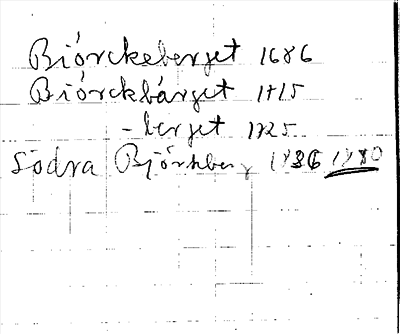 Biórckeberget 1686
Biórckbárget 1715
- berget 1725
Södra Björkberg 1836 1880